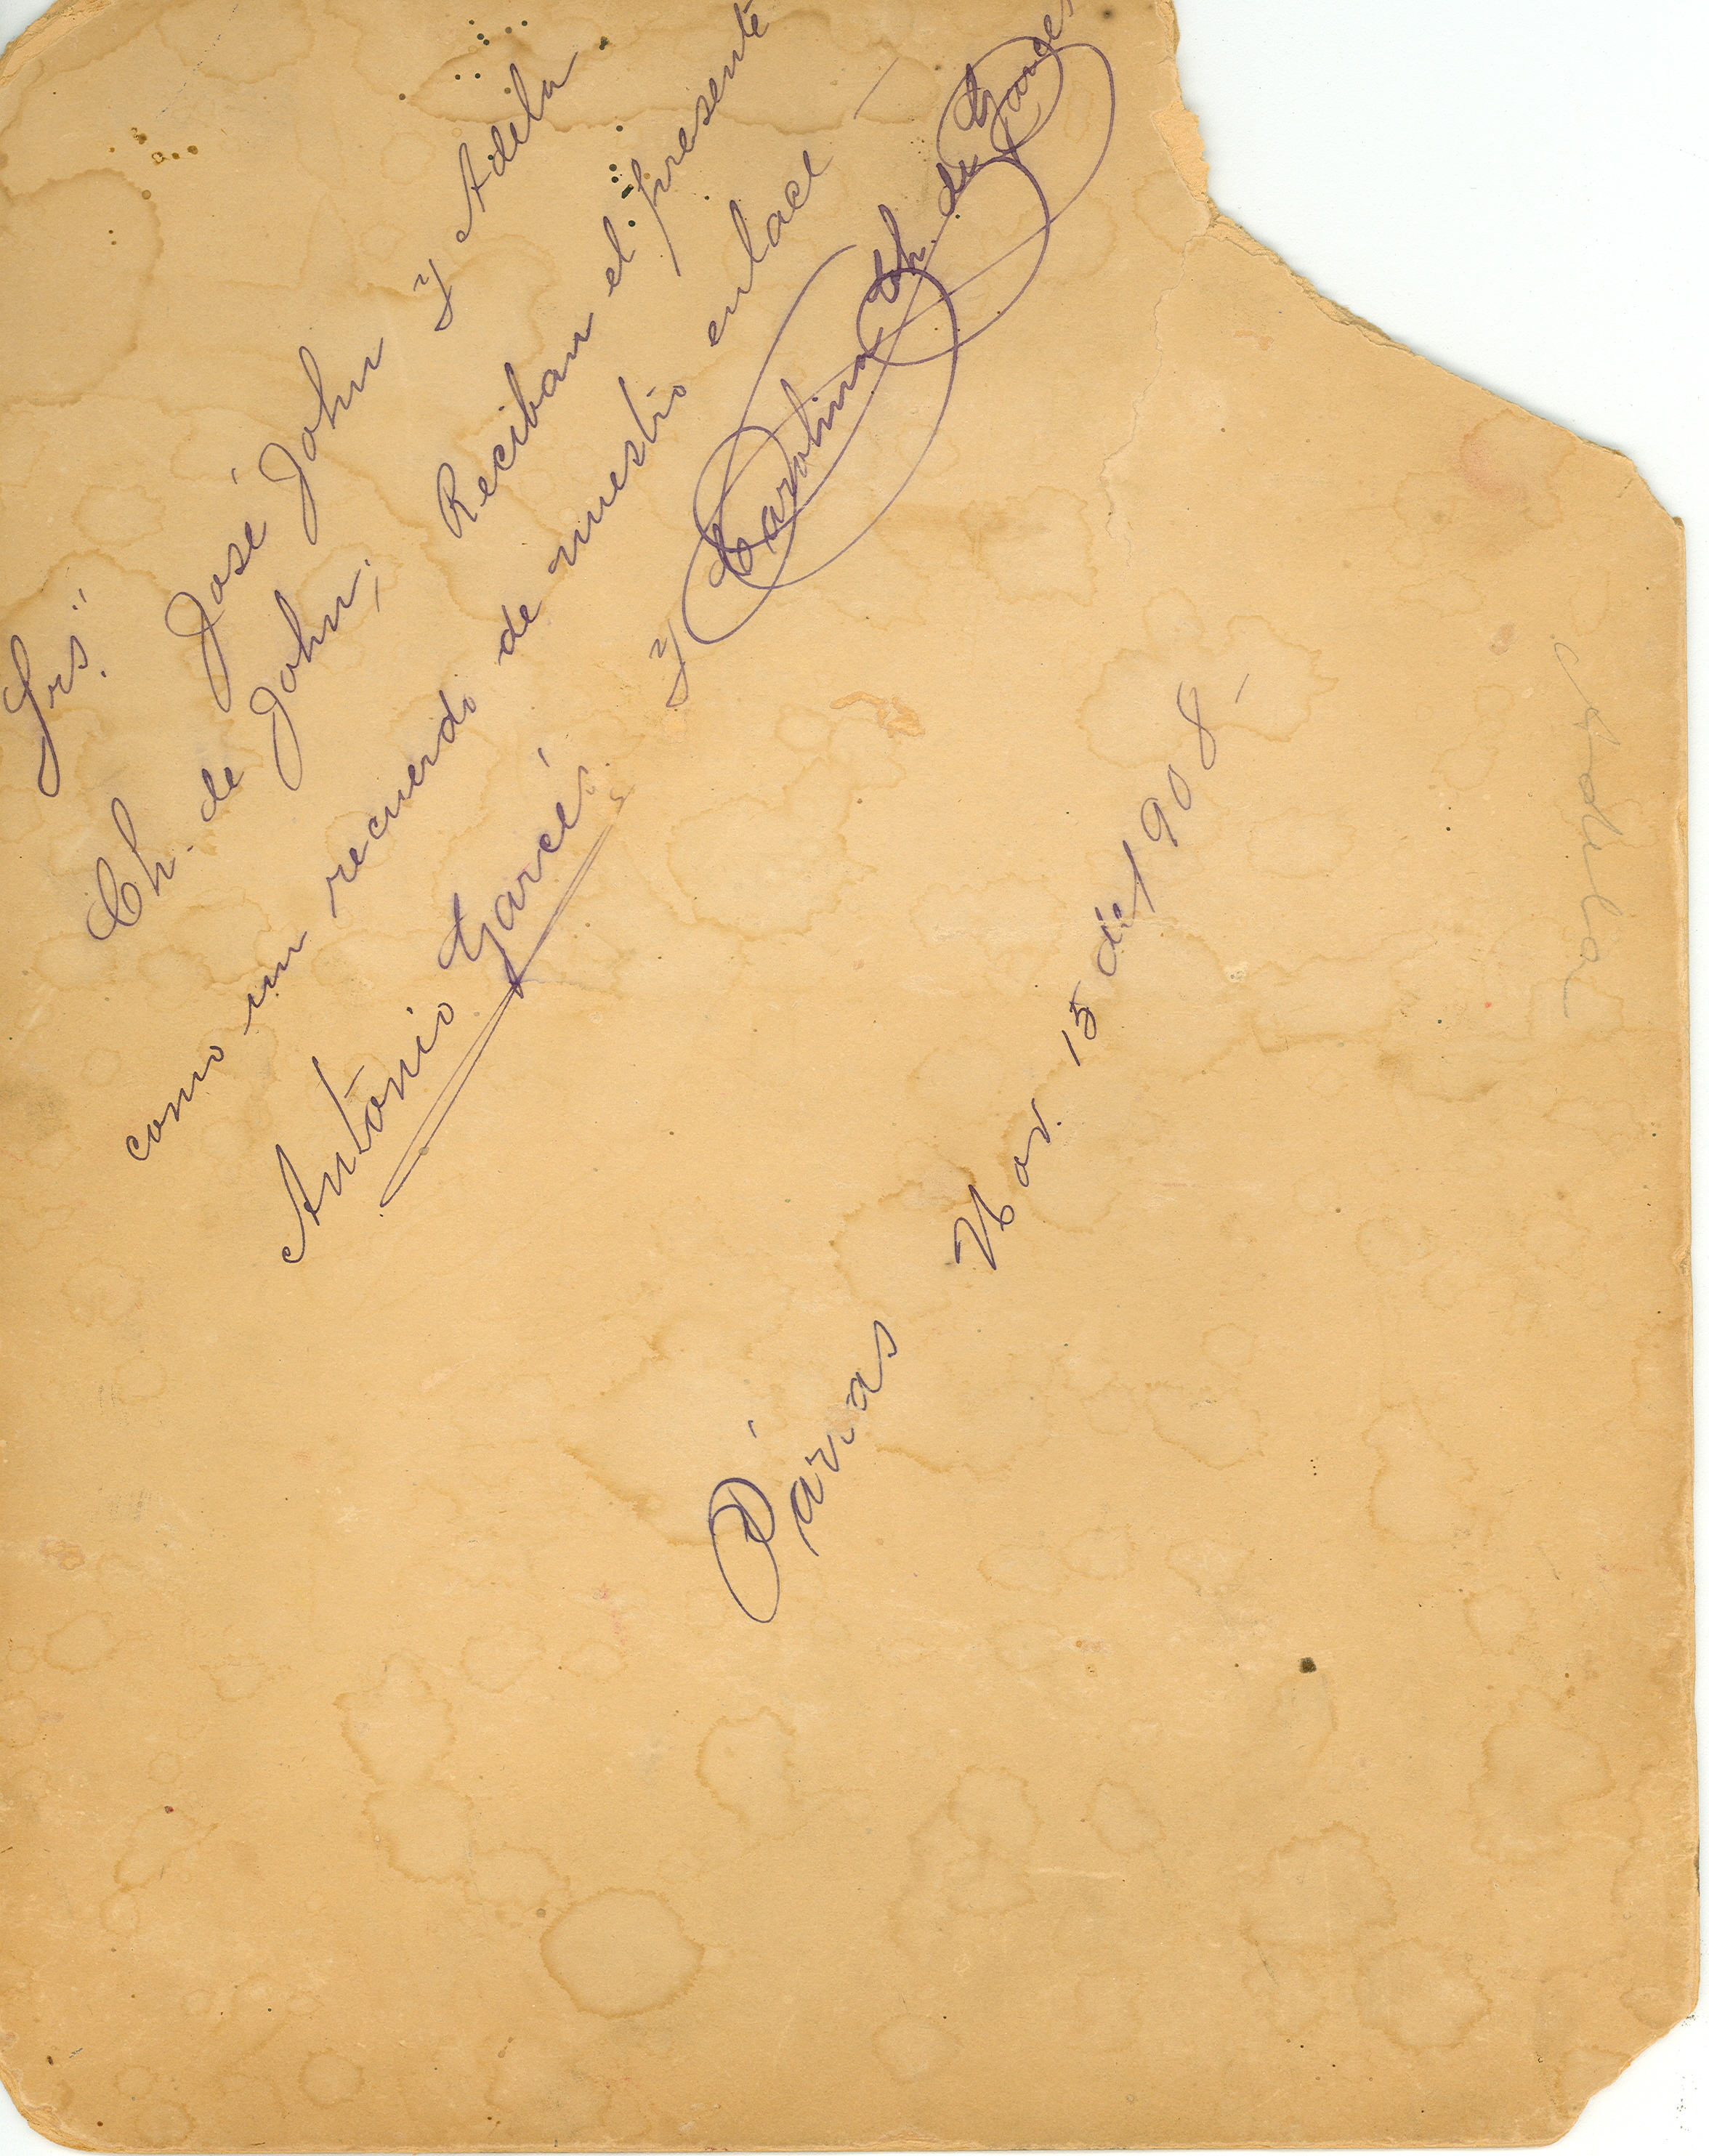 Srs."
José John y Adela
Ch. de John; Reciban el presente
como un recuerdo de nuestro enlace –
Antonio Garcés y Carolina Ch. de Garcés
Párras Nov. 15 de 1908 –
Adela